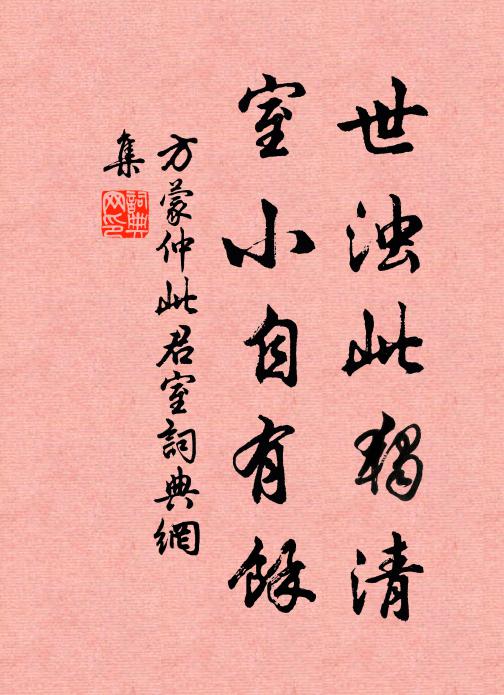 世浊此独清
室小自有餘
方蒙仲此君室詞典網
集
詞典网印